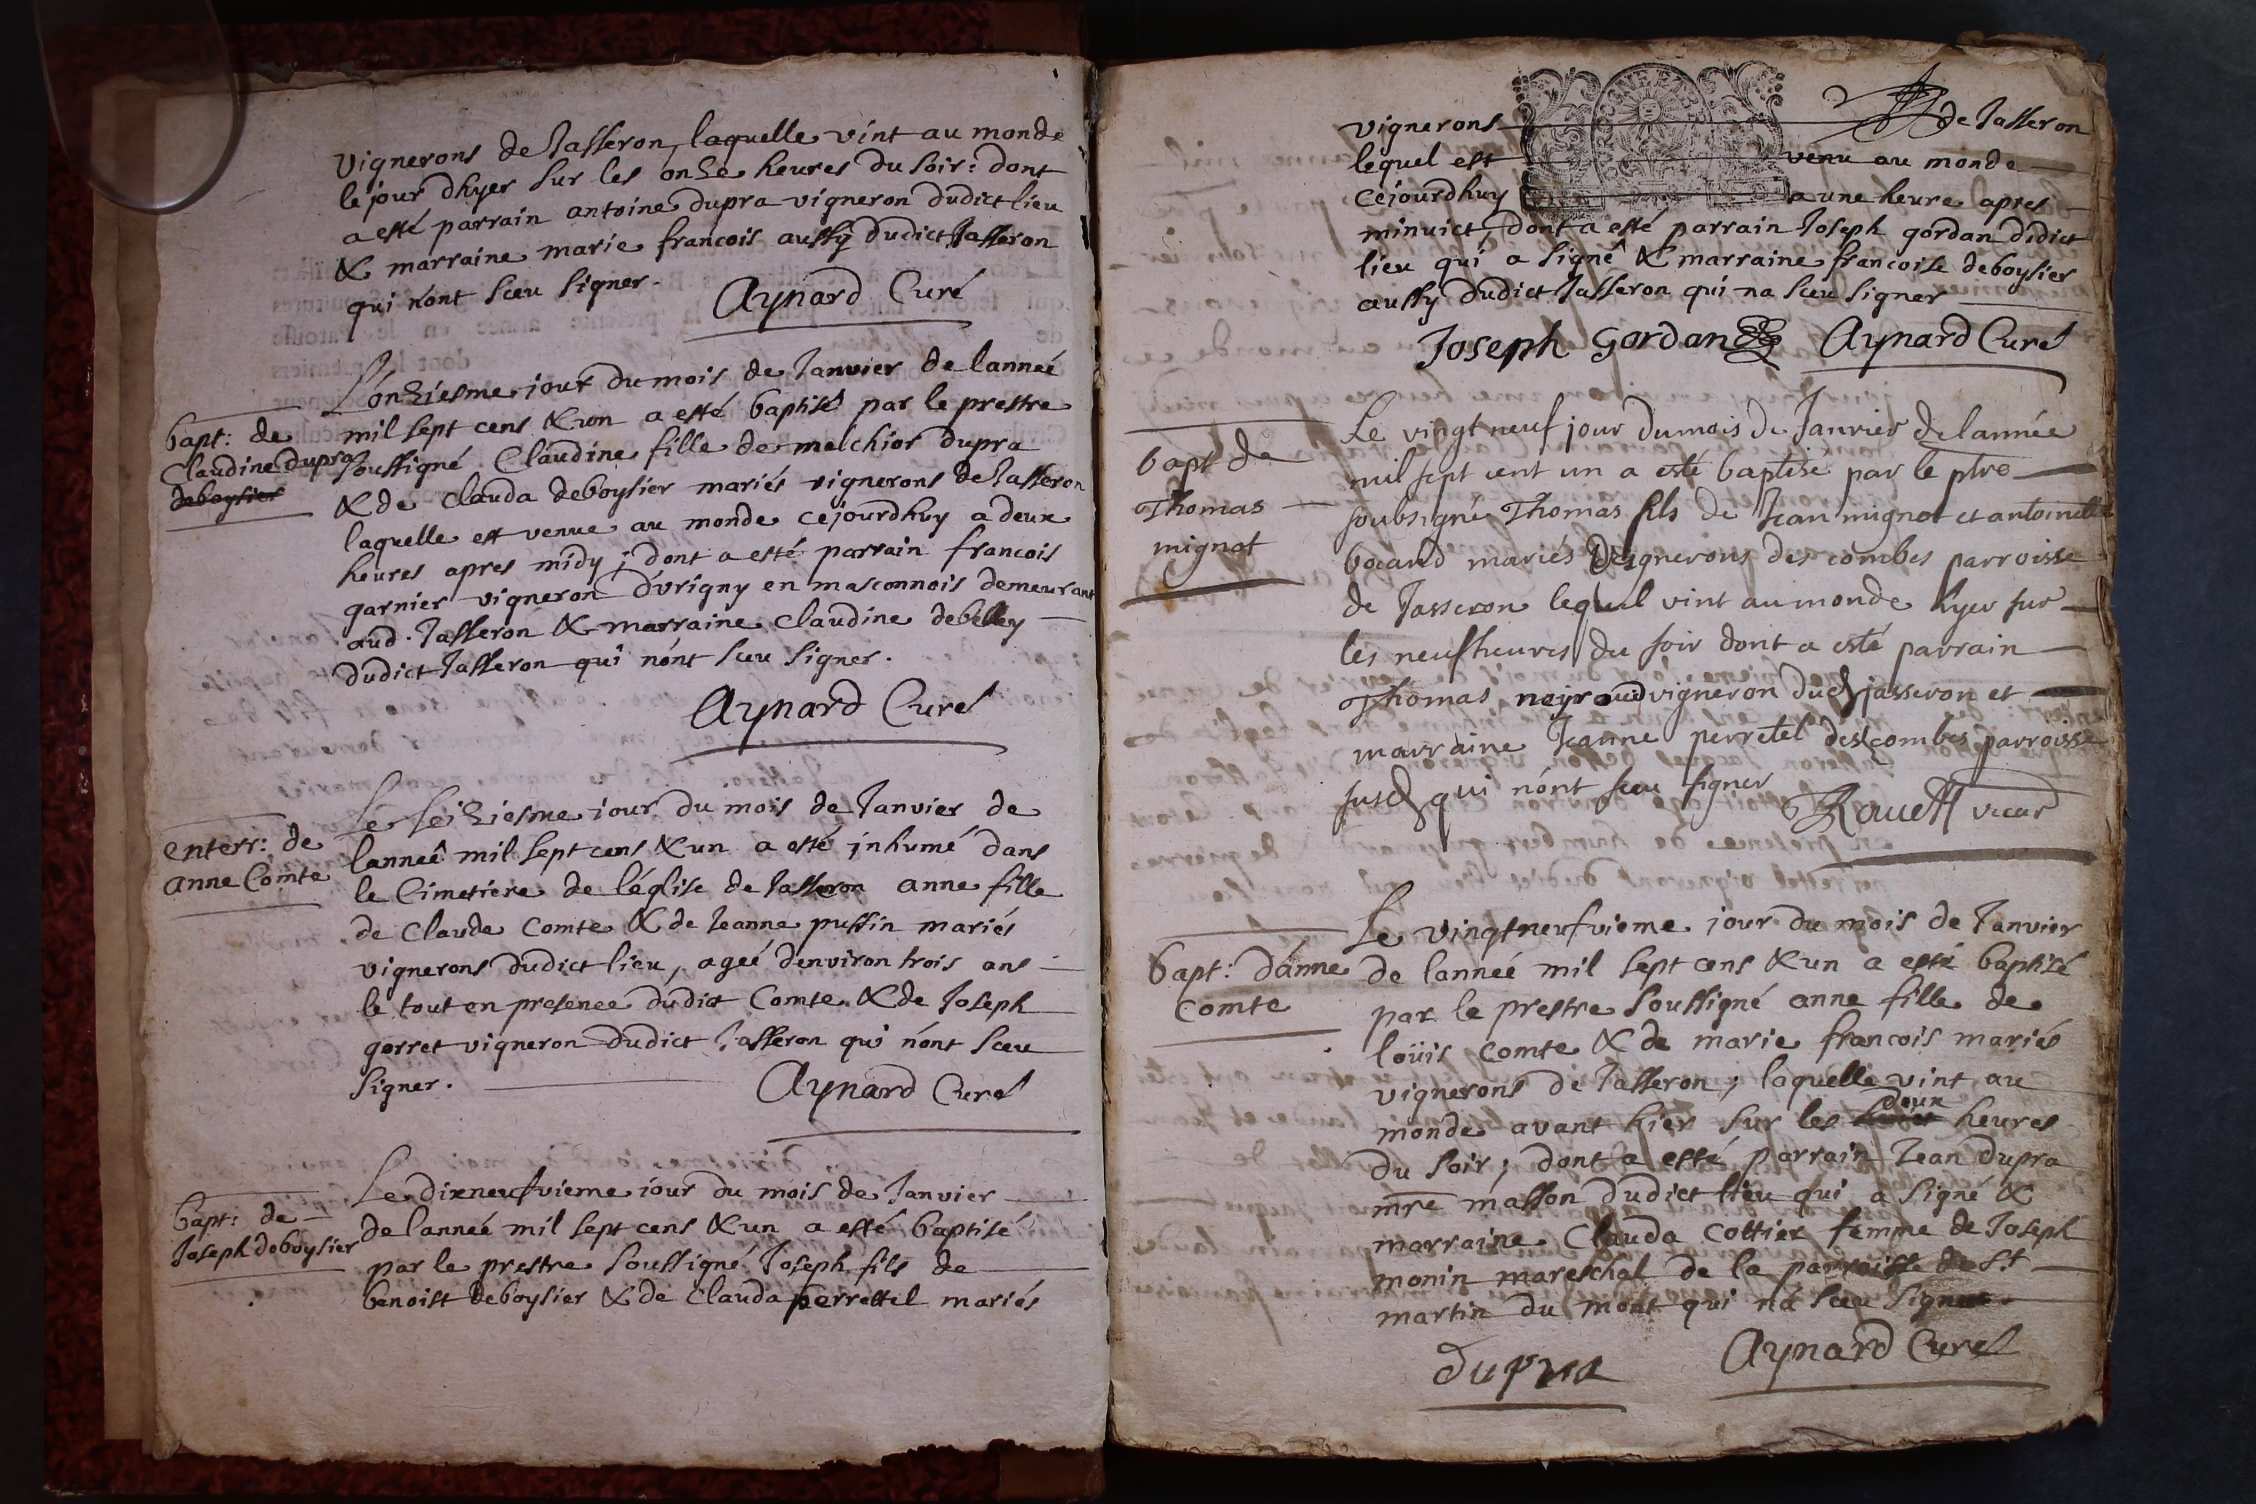 vignerons de Jasseron, laquelle vint au monde
le jour d'hyer sur les onze heures du soir: dont
a esté parrain antoine dupra vigneron dudict lieu
& marraine marie francois aussy dudict Jasseron
qui n'ont sceu signer.
Aynard Curé
L'onziesme jour du mois de Janvier de l'anneé
mil sept cens & un a esté baptisé par le prestre
soussigné Claudine fille de melchior dupra
& de Clauda deboysier mariés vignerons de Jasseron
laquelle est venue au monde cejourdhuy a deux
heures apres midy; dont a esté parrain francois
garnier vigneron d'vrigny en masconnois demeurant
aud. Jasseron & marraine Claudine debelley
dudict Jasseron qui n'ont sceu signer.
Aynard Curé
bapt: de
Claudine dupra
deboysier
Le seiziesme jour du mois de Janvier de
l'anneê mil sept cens & un a esté inhumé dans
le Cimetiere de l'église de Jasseron anne fille
de Claude Comte & de Jeanne pussin mariés
vignerons dudict lieu, ageé d'environ trois ans
le tout en presence dudict Comte & de Joseph
gorret vigneron dudict Jasseron qui n'ont sceu
signer.
Aynard Curé
enterr: de
anne Comte
Le dixneufvieme jour du mois de Janvier
de l'anneé mil sept cens & un a esté baptisé
par le prestre soussigné Joseph fils de
benoist deboysier & de Clauda perrettel mariés
bapt: de
Joseph deboysier
vignerons de Jasseron
lequel est venu au monde
cejourdhuy a une heure apres
minuict, dont a esté parrain Joseph gordan dudict
lieu qui a signê & marraine francoise deboysier
aussy dudict Jasseron qui na sceu signer
Joseph Gordan Aynard Curé
Le vingt neuf jour du mois de Janvier de lannée
mil sept cent un a esté baptisé par le ptre
soubsigné Thomas fils de Jean mignot et antoinette
bocand mariés vignerons des combes parroisse
de Jasseron lequel vint au monde hyer sur
les neuf heures du soir dont a esté parrain
Thomas neyroud vigneron dud jasseron et
marraine Jeanne perretel des combes parroisse
susd qui n'ont sceu signer
vicar
bapt de
Thomas
mignot
Le vingtneufvieme jour du mois de Janvier
de l'anneé mil sept cens & un a esté baptisé
par le prestre soussigné anne fille de
loüis Comte & de marie francois mariés
vignerons de Jasseron; laquelle vint au
monde avant hier sur les deux heures
du soir; dont a esté parrain Jean dupra
mre masson dudict lieu qui a signé &
marraine Clauda Cottier femme de Joseph
monin mareschal de la parroisse de St
martin du mont qui na sceu signer.
dupra Aynard Curé
bapt: d'anne
Comte